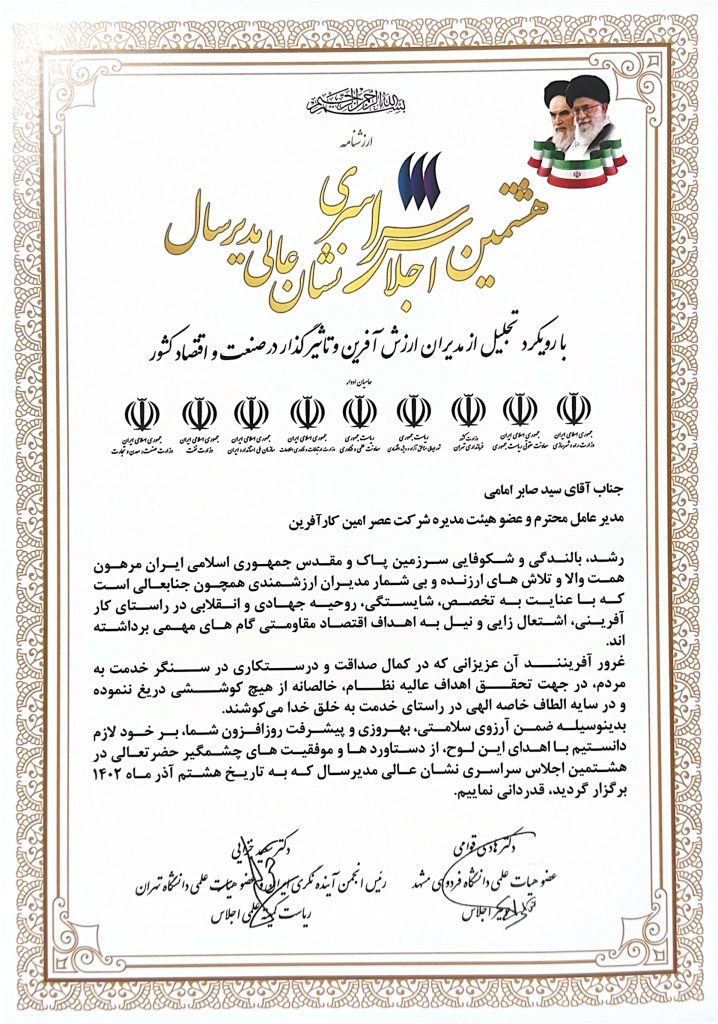 بسم الله الرحمن الرحیم
ارزشنامه
هشتمین اجلاس سراسری
نشان عالی مدیر سال
با رویکرد تجلیل از مدیران ارزش آفرین و تاثیرگذار در صنعت و اقتصاد کشور
حامیان ادوار
جمهوری اسلامی ایران
وزارت راه و شهرسازی
جمهوری اسلامی ایران
معاونت حقوقی ریاست جمهوری
وزارت کشور
فرمانداری تهران
ریاست جمهوری
شورایعالی مناطق آزاد و ویژه اقتصادی
ریاست جمهوری
معاونت علمی و فناوری
جمهوری اسلامی ایران
وزارت ارتباطات و فناوری اطلاعات
جمهوری اسلامی ایران
سازمان ملی استاندارد ایران
جمهوری اسلامی ایران
وزارت نفت
جمهوری اسلامی ایران
وزارت صنعت، معدن و تجارت
جناب آقای سید صابر امامی
مدیر عامل محترم و عضو هیئت مدیره شرکت عصر امین کارآفرین
رشد، بالندگی و شکوفایی سرزمین پاک و مقدس جمهوری اسلامی ایران مرهون
همت والا و تلاش های ارزنده و بی شمار مدیران ارزشمندی همچون جنابعالی است
که با عنایت به تخصص، شایستگی، روحیه جهادی و انقلابی در راستای کار
آفرینی، اشتعال زایی و نیل به اهداف اقتصاد مقاومتی گام های مهمی برداشته
اند.
غرور آفریننـد آن عزیزانی که در کمال صداقت و درستکاری در سنگر خدمت به
مردم، در جهت تحقق اهداف عالیه نظام، خالصانه از هیچ کوششی دریغ ننموده
و در سایه الطاف خاصه الهی در راستای خدمت به خلق خدا می‌کوشند.
بدینوسیله ضمن آرزوی سلامتی، بهروزی و پیشرفت روزافزون شما، بر خود لازم
دانستیم با اهدای این لوح، از دستاورد ها و موفقیت های چشمگیر حضرتعالی در
هشتمین اجلاس سراسری نشان عالی مدیرسال که به تاریخ هشتم آذر ماه ۱۴۰۲
برگزار گردید، قدردانی نماییم.
دکتر هادی قوامی
عضو هیات علمی دانشگاه فردوسی مشهد
اجلاس
دکتر سعید خزایی
رئیس انجمن آینده نگری ایران و عضو هیات علمی دانشگاه تهران
ریاست کمیته علمی اجلاس